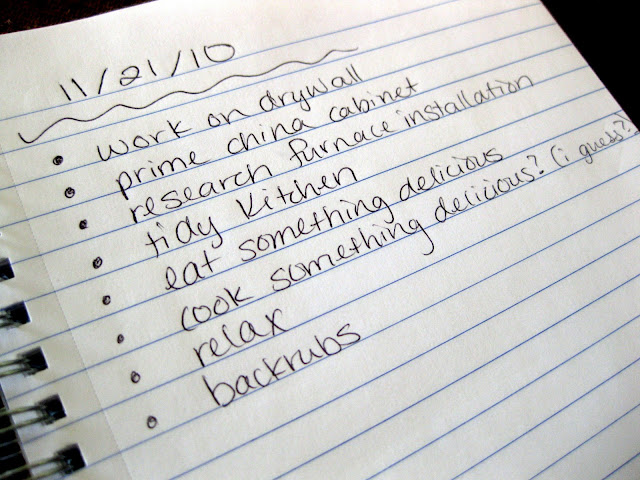 11/21/10
• work on drywall
• prime china cabinet
• research furnace installation
• tidy kitchen
• eat something delicious
• cook something delicious? (i guess?)
• relax
• backrubs